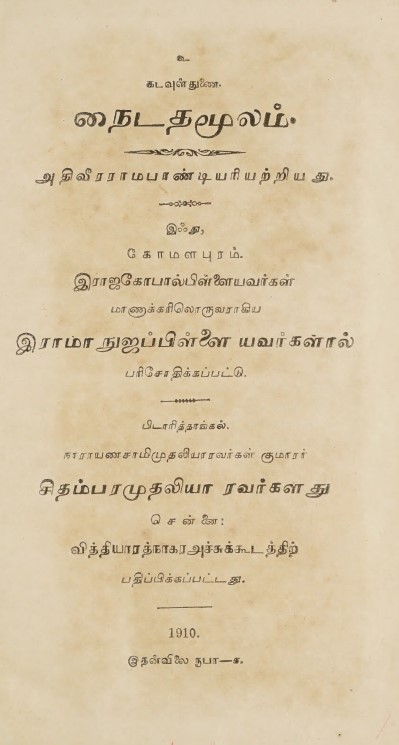 உ
கடவுள் துணை.
நைடதமூலம்.
அதிவீரராமபாண்டியரியற்றியது.
இஃது,
கோமளபுரம்.
இராஜகோபால்பிள்ளையவர்கள்
மாணாக்கரிலொருவராகிய
இராமாநுஜப்பிள்ளை யவர்களால்
பரிசோதிக்கப்பட்டு.
பிடாரித்தாங்கல்.
நாராயணசாமிமுதலியாரவர்கள் குமாரர்
சிதம்பரமுதலியா ரவர்களது
சென்னை:
வித்தியாரத்நாகரஅச்சுக்கூடத்திற்
பதிப்பிக்கப்பட்டது.
1910.
இதன்விலை ரூபா—௧.